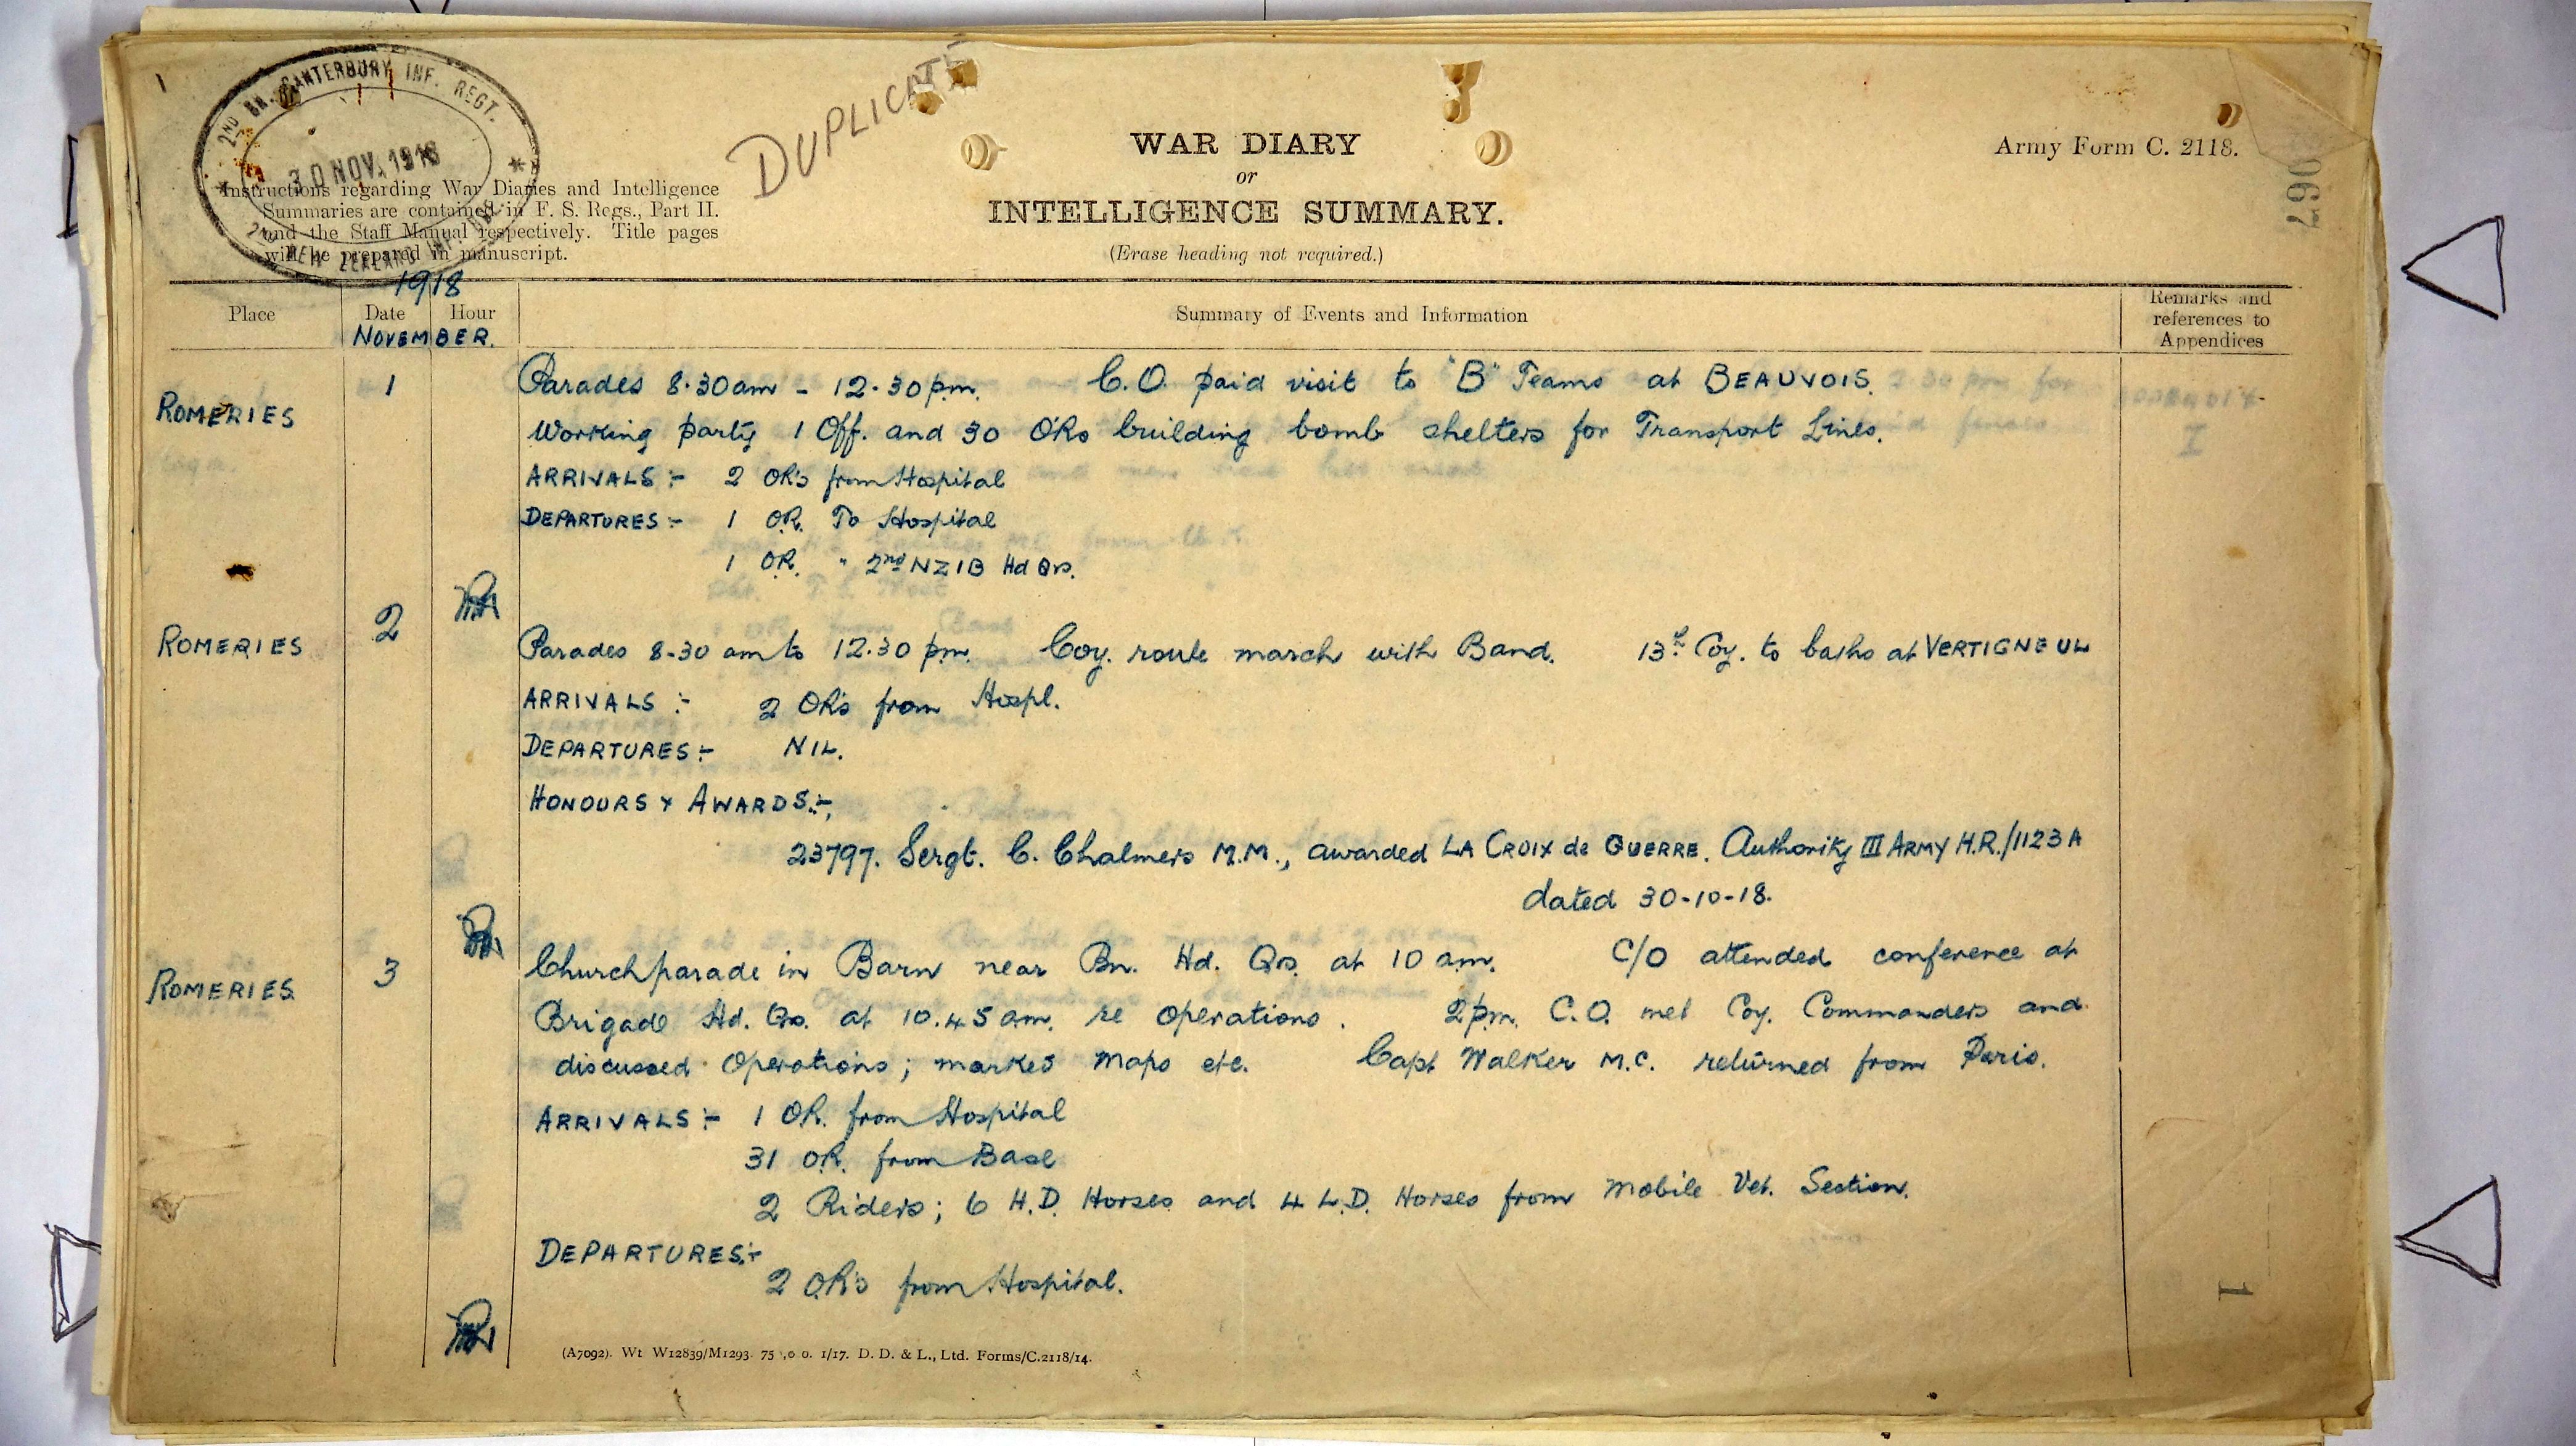 2ND BN. CANTERBURY INF. REGT.
30 NOV. 1918
2ND NEW ZEALAND INF. BDE.
DUPLICATE
Instructions regarding War Diaries and Intelligence
Summaries are contained in F. S. Regs., Part II.
and the Staff Manual respectively. Title pages
will be prepared in manuscript.
WAR DIARY
or
INTELLIGENCE SUMMARY.
(Erase heading not required.)
Army Form C. 2118.
067
1918
Place Date Hour Summary of Events and Information Remarks and references to Appendices
NOVEMBER.
ROMERIES 1 Parades 8.30am - 12.30pm. C.O. paid visit to "B" Teams at BEAUVOIS.
Working party 1 Off. and 30 ORs building bomb shelters for Transport Lines.
ARRIVALS :- 2 OR's from Hospital
DEPARTURES :- 1 OR. To Hospital
1 O.R. " 2nd NZIB Hd Qrs.
ROMERIES 2 Parades 8-30 am to 12.30 pm. Coy. route march with Band. 13th Coy. to baths at VERTIGNEUL
ARRIVALS :- 2 OR's from Hospl.
DEPARTURES :- NIL.
HONOURS & AWARDS :-,
23797. Sergt. C. Chalmers M.M., awarded LA CROIX de GUERRE. Authority III ARMY H.R./1123A
dated 30-10-18.
ROMERIES 3 Church parade in Barn near Bn. Hd. Qrs. at 10 am. C/O attended conference at
Brigade Hd. Qrs. at 10.45 am. re operations. 2pm. C.O. met Coy. Commanders and
discussed Operations; marked maps etc. Capt Walker M.C. returned from Paris.
ARRIVALS :- 1 OR. from Hospital
31 OR. from Base
2 Riders; 6 H.D. Horses and 4 L.D. Horses from Mobile Vet. Section.
DEPARTURES :-
2 OR's from Hospital.
1
(A7092). Wt W12839/M1293. 75 ,0 0. 1/17. D. D. & L., Ltd. Forms/C.2118/14.